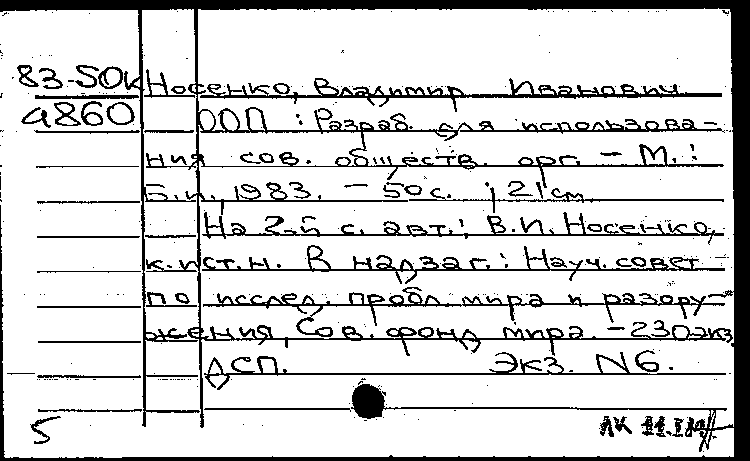 83-50к Носенко, Владимир Иванович
9860 ООП : Разраб. для использова-
ния сов. обществ. орг. - М. :
Б.и., 1983. - 50 с. ; 21 см.
На 2-й с. авт.: В.И. Носенко,
к.ист.н. В надзаг.: Науч. совет
по исслед. пробл. мира и разору-
жения, Сов. фонд мира. - 230 экз.
ДСП. Экз. N6.
5 ЛК